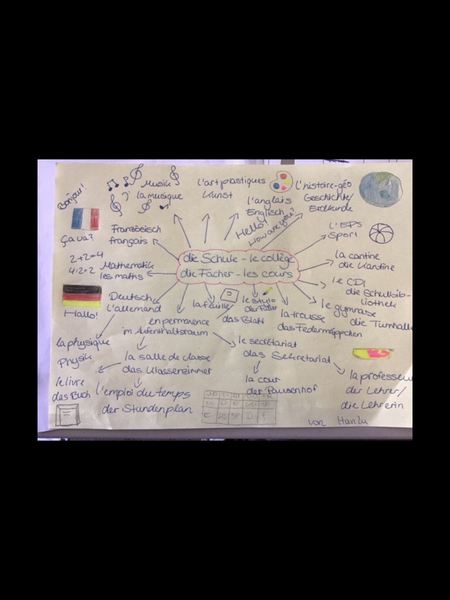 Bonjour!
Musik
la musique
l'art plastiques
Kunst
l'histoire-géo
Geschichte/
Erdkunde
l'anglais
Englisch
Hello!
How are you?
Ça va?
Französisch
français
l'EPS
Sport
die Schule - le collège
die Fächer - les cours
2+2=4
4:2=2
Mathematik
les maths
la cantine
die Kantine
le CDI
die Schulbib-
liothek
Hallo!
Deutsch
l'allemand
la feuille
das Blatt
le stylo
der Füller
la trousse
das Federmäppchen
le gymnase
die Turnhalle
en permanence
im Aufenthaltsraum
la physique
Physik
la salle de classe
das Klassenzimmer
le secrétariat
das Sekretariat
le livre
das Buch
l'emploi du temps
der Stundenplan
la cour
der Pausenhof
la professeur
der Lehrer/
die Lehrerin
von